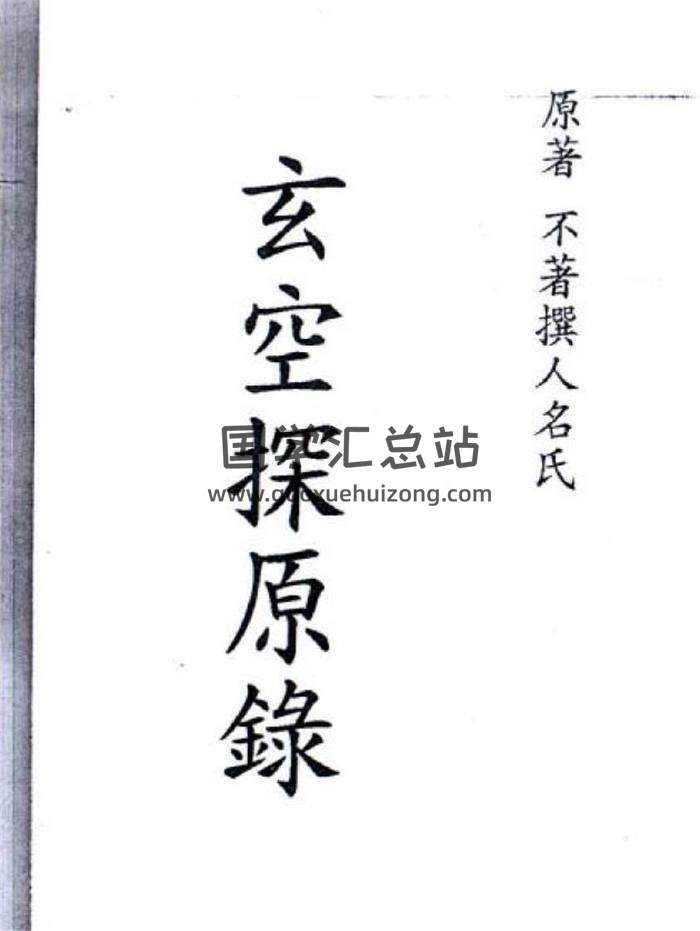 原著 不著撰人名氏
玄空探原錄
国学汇总站
www.guoxuehuizong.com